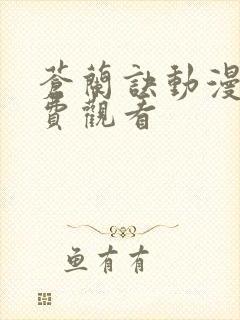 蒼蘭訣動漫
費觀看
鱼有有